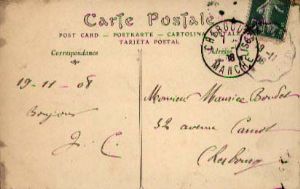 Carte Postale
POST CARD — POSTKARTE — CARTOLINA
TARJETA POSTAL
Correspondance
Adresse
MANCHE
19-11-08
Bonjour
J. C.
Monsieur Maurice
32 avenue Carnot
Cherbourg